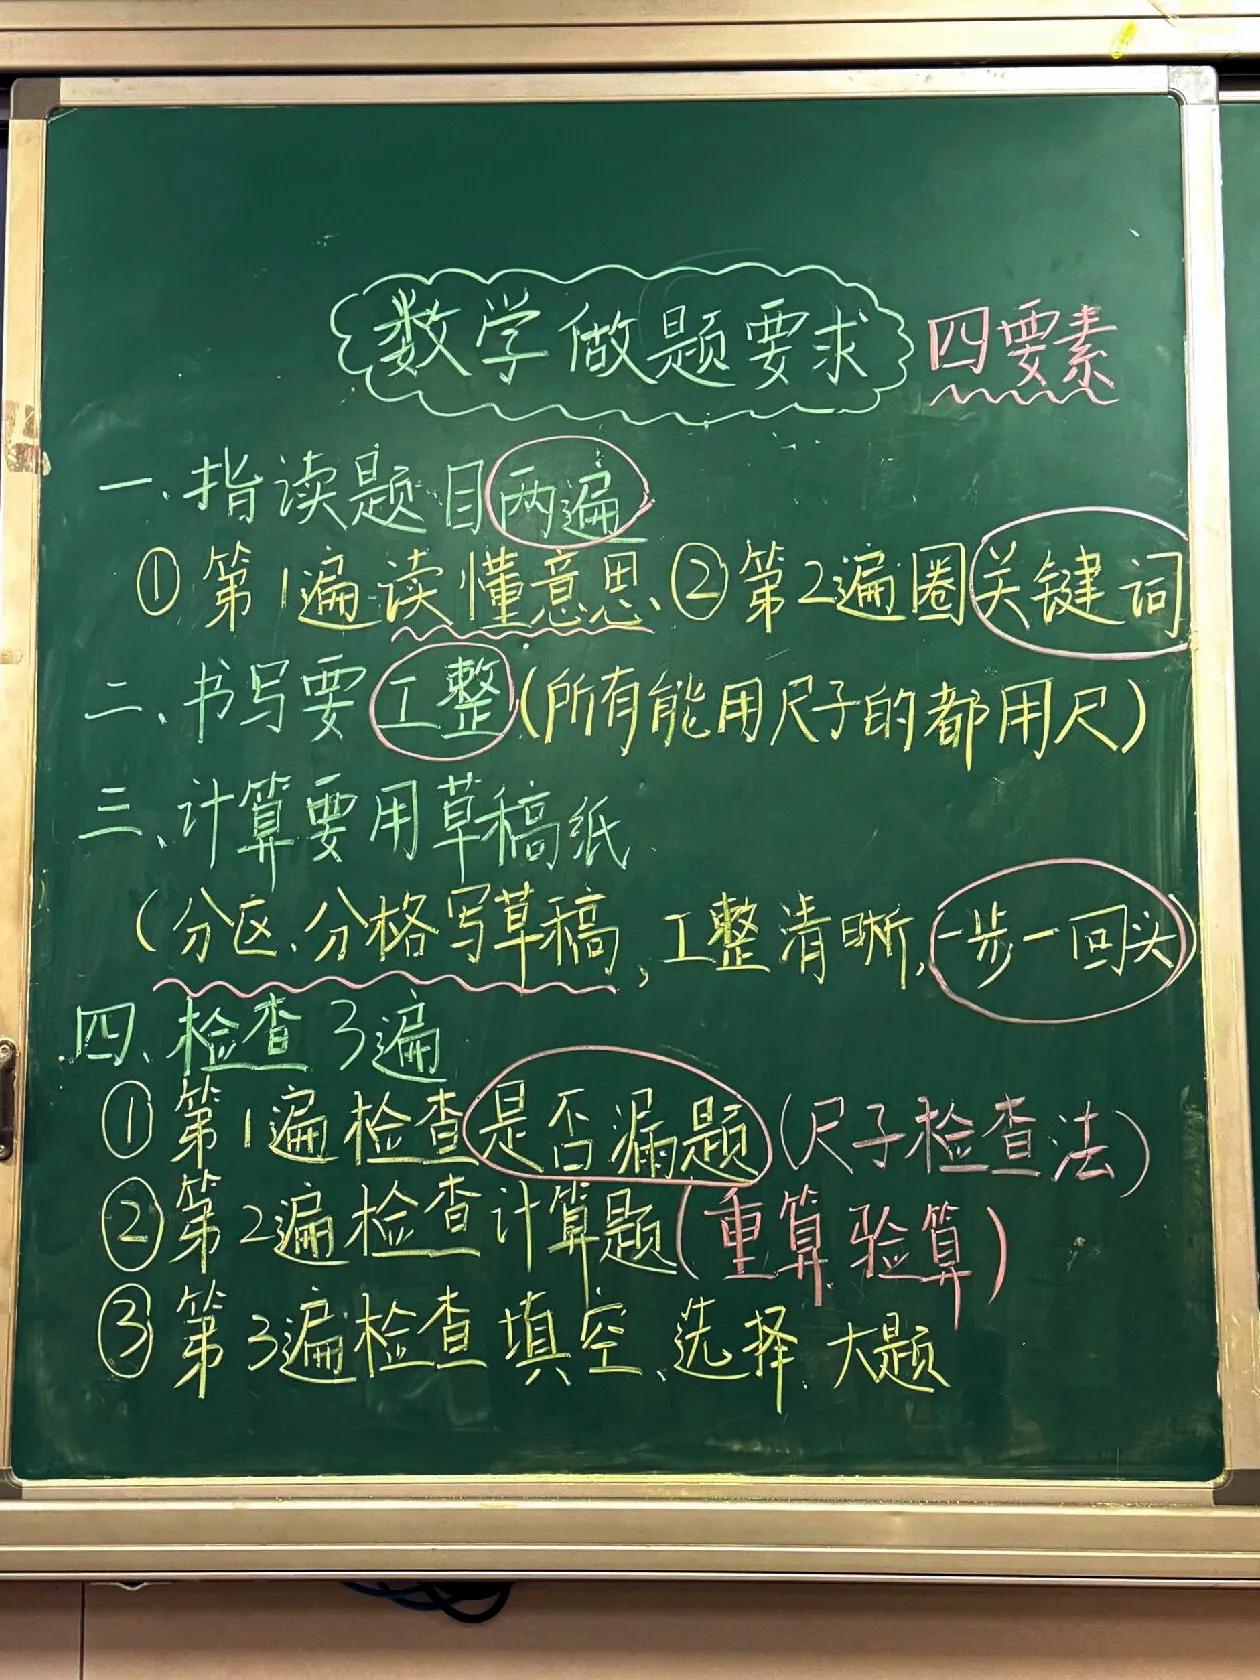 数学做题要求 四要素
一、指读题目两遍
①第1遍读懂意思、②第2遍圈关键词
二、书写要工整(所有能用尺子的都用尺)
三、计算要用草稿纸
(分区、分格写草稿,工整清晰,一步一回头)
四、检查3遍
①第1遍检查是否漏题(尺子检查法)
②第2遍检查计算题(重算、验算)
③第3遍检查填空、选择、大题